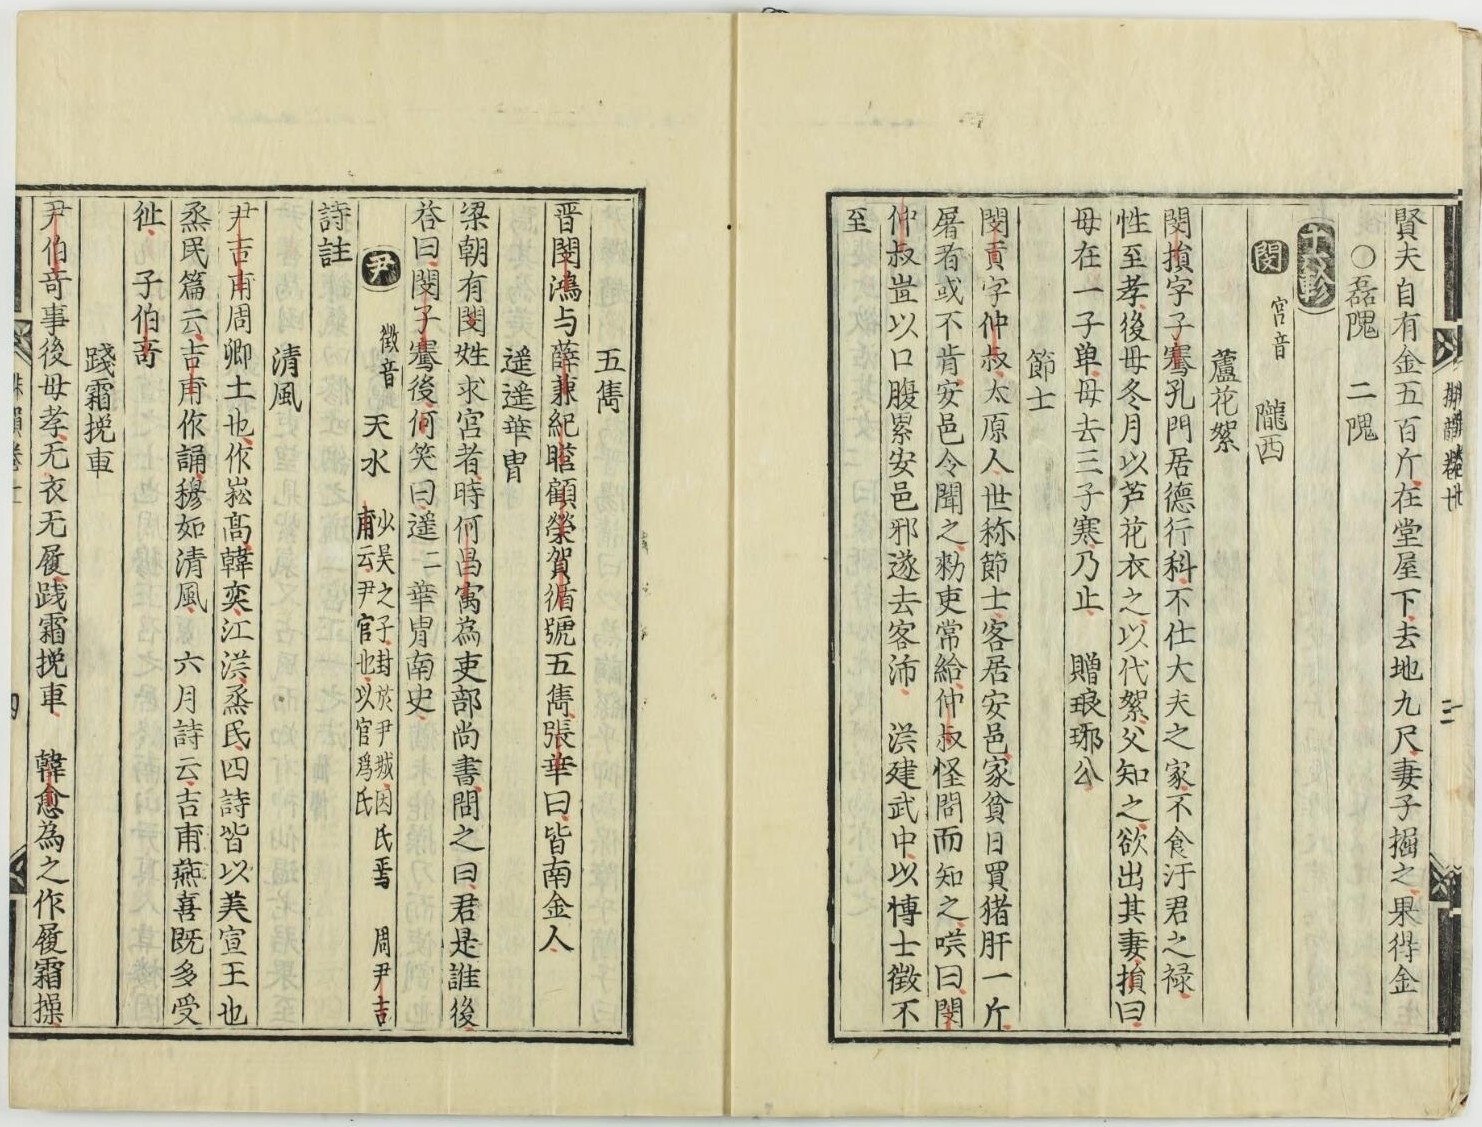 賢夫自有金五百斤在堂屋下去地九尺妻子掘之果得金
○磊隗　二隗
十六軫
閔　宮音　隴西
蘆花絮
閔損字子騫孔門居德行科不仕大夫之家不食汙君之禄
性至孝後母冬月以芦花衣之以代絮父知之欲出其妻損曰
母在一子单母去三子寒乃止　贈琅琊公
節士
閔貢字仲叔太原人世称節士客居安邑家貧日買猪肝一斤
屠者或不肯安邑令聞之勑吏常給仲叔怪問而知之嘆曰閔
仲叔豈以口腹累安邑邪遂去客沛　漢建武中以博士徴不
至
五雋
晋閔鴻与薛兼紀瞻顧榮賀循號五雋張華曰皆南金人
遥遥華胄
梁朝有閔姓求官者時何昌寓為吏部尚書問之曰君是誰後
答曰閔子騫後何笑曰遥二華胄南史
尹　徵音　天水　少昊之子封於尹城因氏焉　周尹吉
甫云尹官也以官爲氏
詩註
清風
尹吉甫周卿士也作崧髙韓奕江漢烝民四詩皆以美宣王也
烝民篇云吉甫作誦穆如清風　六月詩云吉甫燕喜既多受
祉　子伯奇
踐霜挽車
尹伯奇事後母孝无衣无履践霜挽車　韓愈為之作履霜操